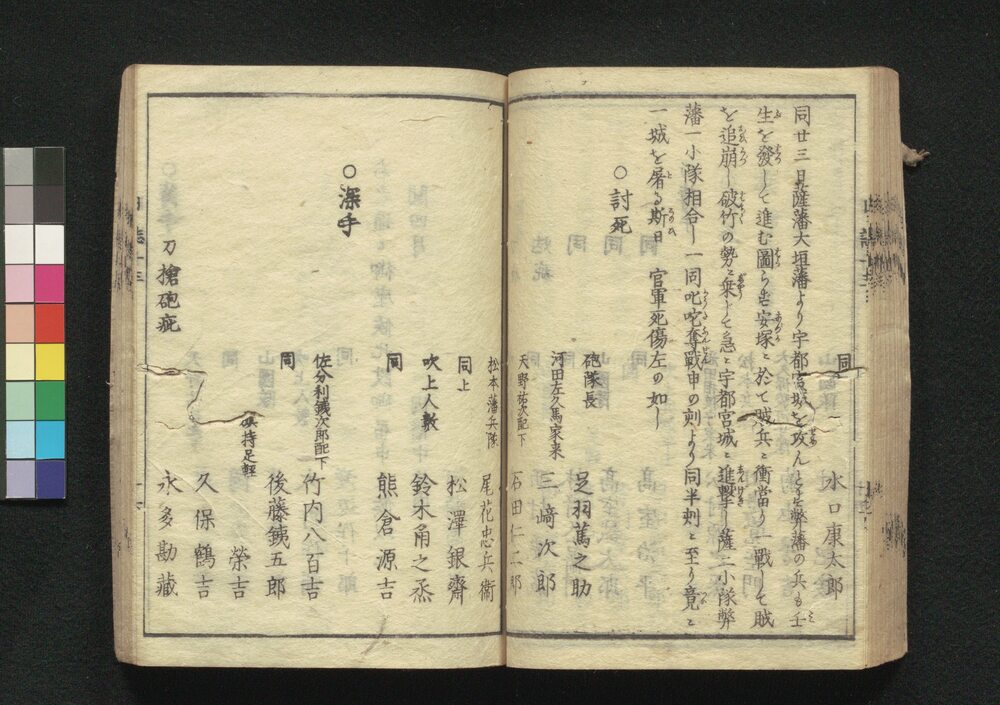 同 水口康太郎
同廿三日薩藩大垣藩より宇都宮城を攻んとす弊藩の兵も壬
生を發して進む圖らす安塚に於て賊兵に衝當り一戰して賊
を追崩し破竹の勢に乗して急に宇都宮城に進撃す薩二小隊弊
藩一小隊相合し一同叱咤奪戰申の刻より同半刻に至り竟に
一城を屠る斯日 官軍死傷左の如し
○討死
砲隊長 足羽萬之助
河田左久馬家来 三﨑次郎
天野祐次配下 石田仁二郎
松本藩兵隊 尾花忠兵衛
同上 松澤銀齋
吹上人数 鈴木角之烝
同 熊倉源吉
○深手
佐分利鉄次郎配下 竹内八百吉
同 後藤銕五郎
旗持足軽 榮吉
久保鶴吉
刀槍砲疵 永多勘藏